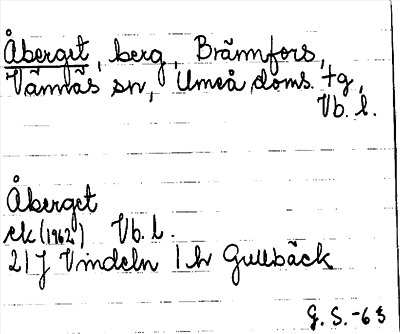 Åberget, berg, Brännfors,
Vännäs sn, Umeå doms. tg,
Vb. l.
Åberget
ek (1962) Vb. l.
21J Vindeln 1 h Gullbäck
G. S. -63